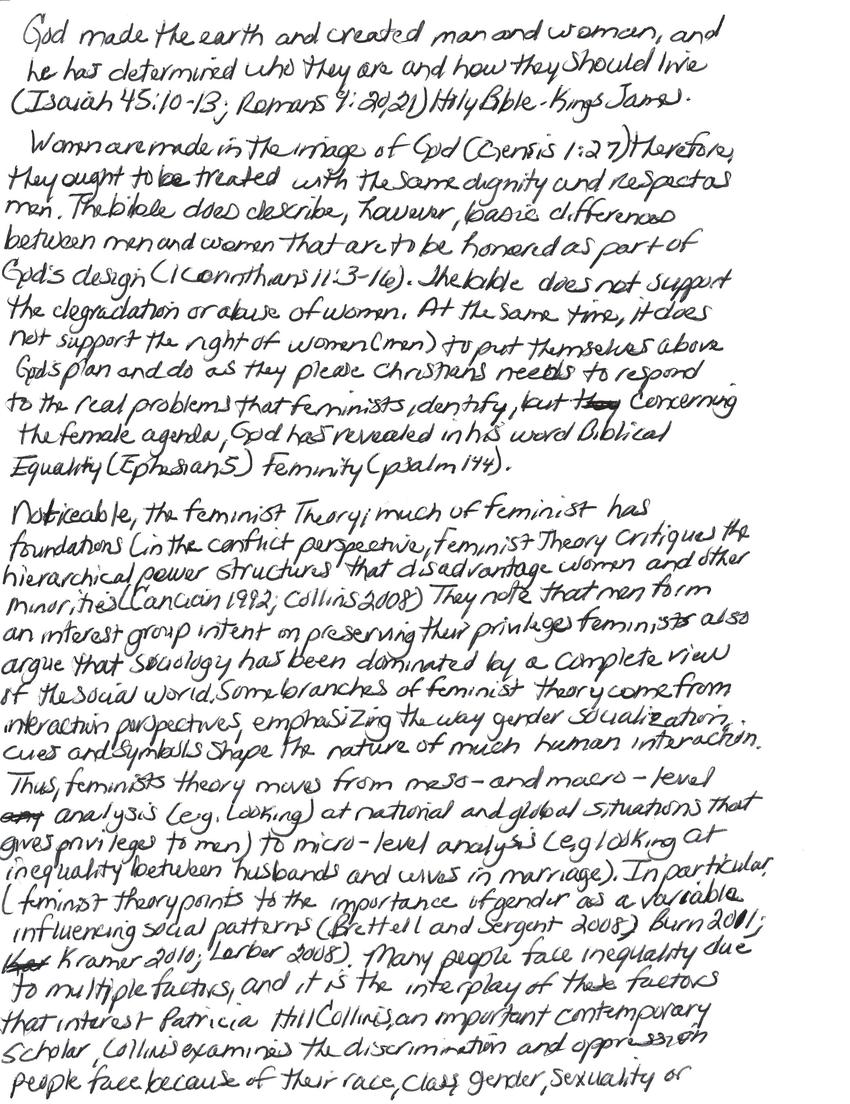 God made the earth and created man and woman, and
he has determined who they are and how they should live
(Isaiah 45:10-13; Romans 9:20,21) Holy Bible - Kings James.
Women are made in the image of God (Gensis 1:27) therefore,
they ought to be treated with the same dignity and respect as
men. The bible does describe, however, basic differences
between men and women that are to be honored as part of
God's design (1 Corinthians 11:3-16). The bible does not support
the degradation or abuse of women. At the same time, it does
not support the right of women (men) to put themselves above
God's plan and do as they please Christians needs to respond
to the real problems that feminists identify, but they concerning
the female agenda, God has revealed in his word Biblical
Equality (Ephesian 5) Feminity (psalm 144).
Noticeable, the feminist Theory; much of feminist has
foundations (in the conflict perspective, feminist Theory critiques the
hierarchical power structures that disadvantage women and other
minorities (Cancian 1992; Collins 2008) They note that men form
an interest group intent on preserving their privileges feminists also
argue that sociology has been dominated by a complete view
of the social world. Some branches of feminist theory come from
interaction perspectives, emphasizing the way gender socialization,
cues and symbols shape the nature of much human interaction.
Thus, feminists theory moves from meso- and macro-level
any analysis (e.g. Looking) at national and global situations that
gives privileges to men) to micro-level analysis (e.g looking at
inequality between husbands and wives in marriage). In particular,
(feminist theory points to the importance of gender as a variable
influencing social patterns (Brettell and Sergent 2008) Burn 2011;
Kramer 2010; Lorber 2008). Many people face inequality due
to multiple factors, and it is the interplay of these factors
that interest Patricia Hill Collins, an important contemporary
scholar, Collins examines the discrimination and oppression
people face because of their race, class, gender, sexuality or